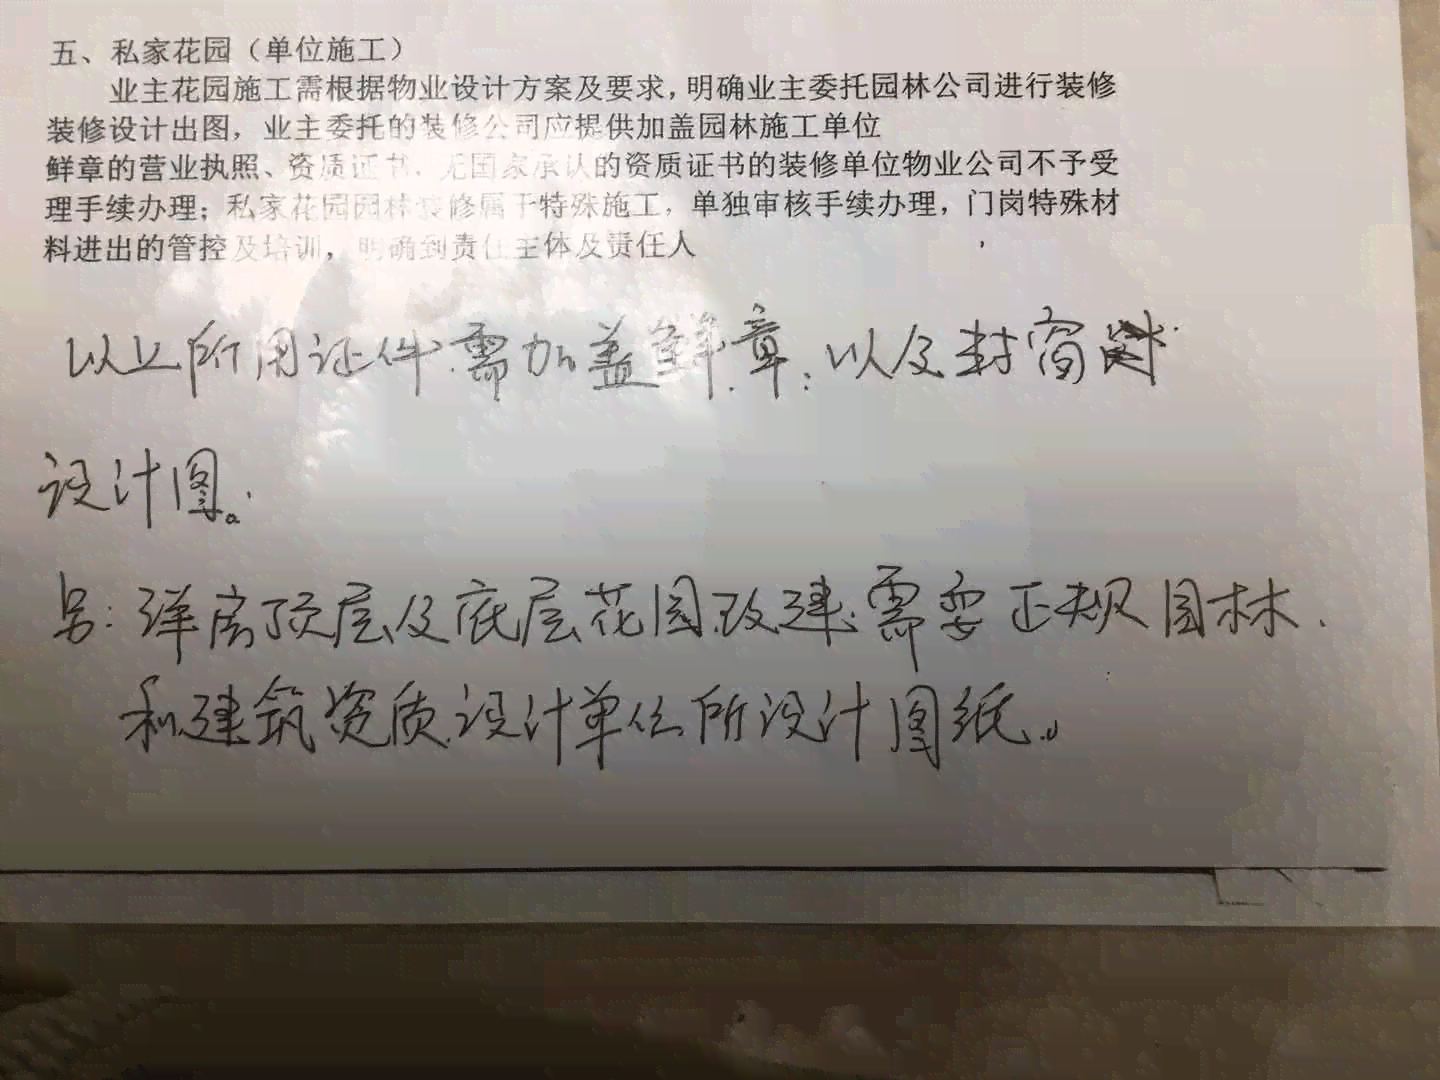 五、私家花园（单位施工）
业主花园施工需根据物业设计方案及要求，明确业主委托园林公司进行装修
装修设计出图，业主委托的装修公司应提供加盖园林施工单位
鲜章的营业执照、资质证书，无国家承认的资质证书的装修单位物业公司不予受
理手续办理；私家花园园林装修属于特殊施工，单独审核手续办理，门岗特殊材
料进出的管控及培训，明确到责任主体及责任人
以上所用证件需加盖鲜章；以及封窗
设计图。
另：洋房顶层及底层花园改建需要正规园林
和建筑资质设计单位所设计图纸。